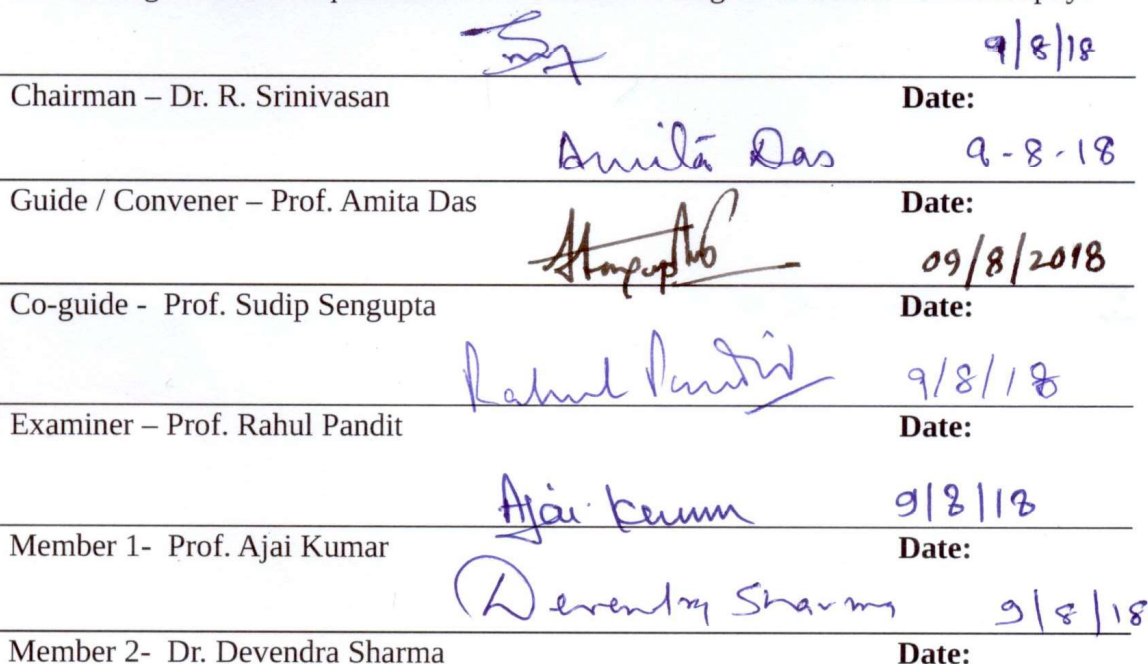 9/8/18
Chairman – Dr. R. Srinivasan Date:
Amita Das 9-8-18
Guide / Convener – Prof. Amita Das Date:
09/8/2018
Co-guide - Prof. Sudip Sengupta Date:
Rahul Pandit 9/8/18
Examiner – Prof. Rahul Pandit Date:
Ajai Kumar 9/8/18
Member 1- Prof. Ajai Kumar Date:
Devendra Sharma 9/8/18
Member 2- Dr. Devendra Sharma Date: